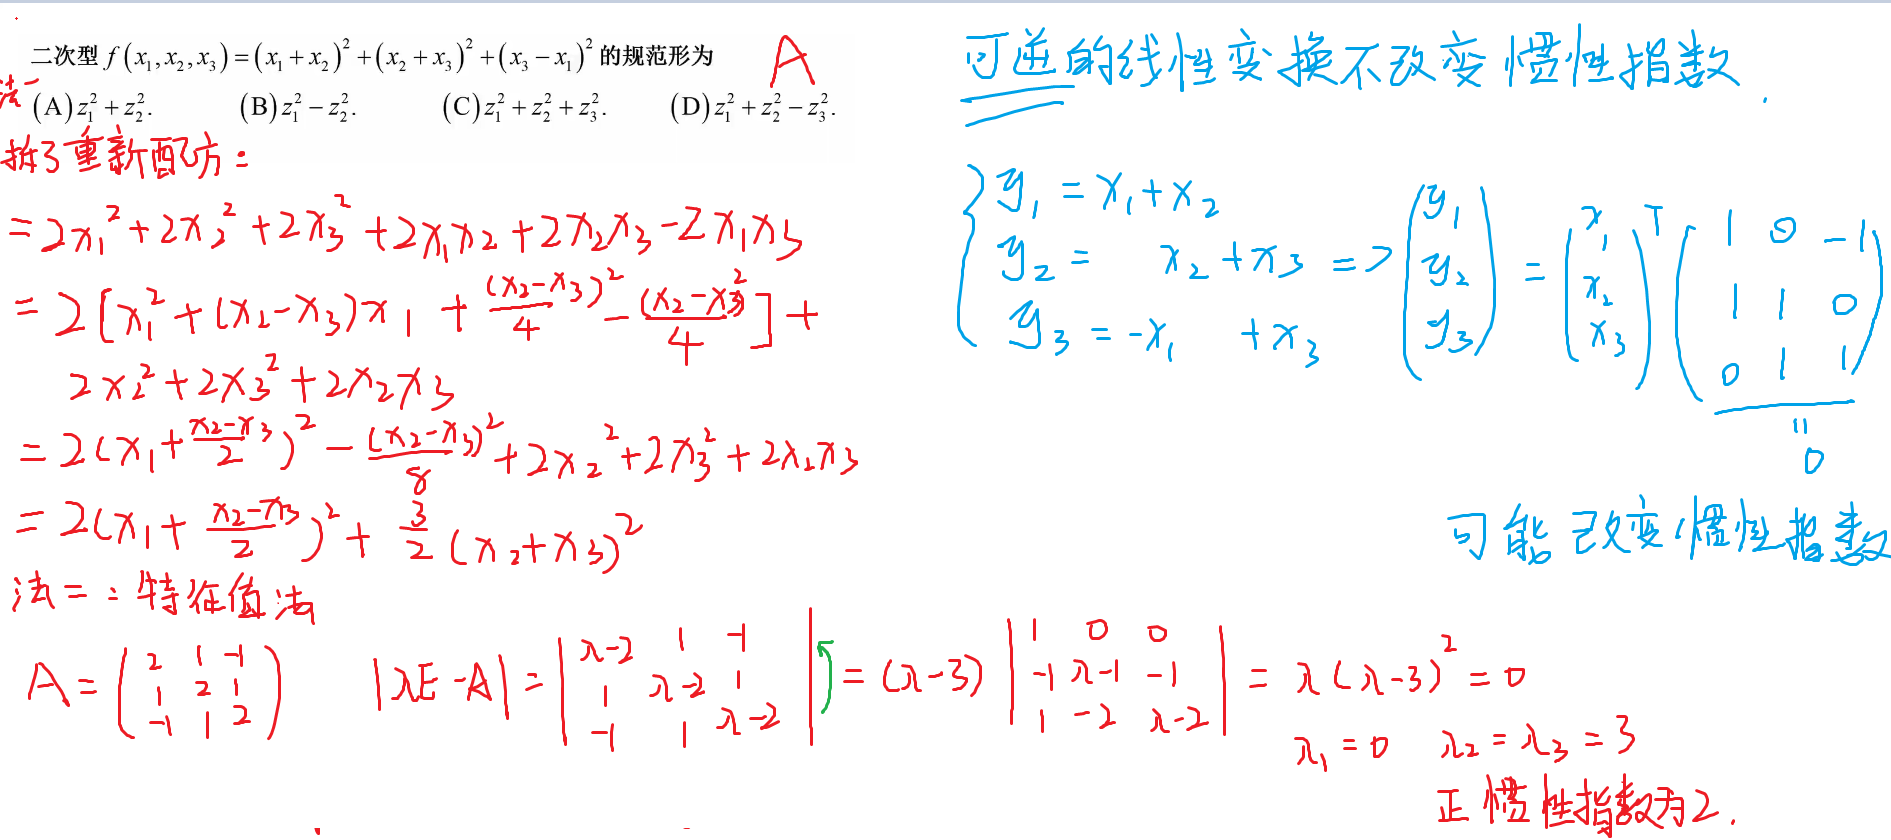 二次型 f(x₁,x₂,x₃)=(x₁+x₂)²+(x₂+x₃)²+(x₃-x₁)² 的规范形为 A
(A)z₁²+z₂². (B)z₁²-z₂². (C)z₁²+z₂²+z₃². (D)z₁²+z₂²-z₃².
法一
拆了重新配方:
=2x₁²+2x₂²+2x₃²+2x₁x₂+2x₂x₃-2x₁x₃
=2[x₁²+(x₂-x₃)x₁+(x₂-x₃)²/4-(x₂-x₃)²/4]+
2x₂²+2x₃²+2x₂x₃
=2(x₁+(x₂-x₃)/2)²-(x₂-x₃)²/8+2x₂²+2x₃²+2x₂x₃
=2(x₁+(x₂-x₃)/2)²+3/2(x₂+x₃)²
法二:特征值法
A=(2 1 -1
1 2 1
-1 1 2)
|λE-A|=|λ-2 1 -1
1 λ-2 1
-1 1 λ-2|
=(λ-3)|1 0 0
-1 λ-1 -1
1 -2 λ-2|
=λ(λ-3)²=0
λ₁=0 λ₂=λ₃=3
正惯性指数为2.
可逆的线性变换不改变惯性指数.
{y₁=x₁+x₂
y₂= x₂+x₃
y₃=-x₁ +x₃
=>(y₁
y₂
y₃)
=(x₁
x₂
x₃)ᵀ
(1 0 -1
1 1 0
0 1 1)
=
0
可能改变惯性指数